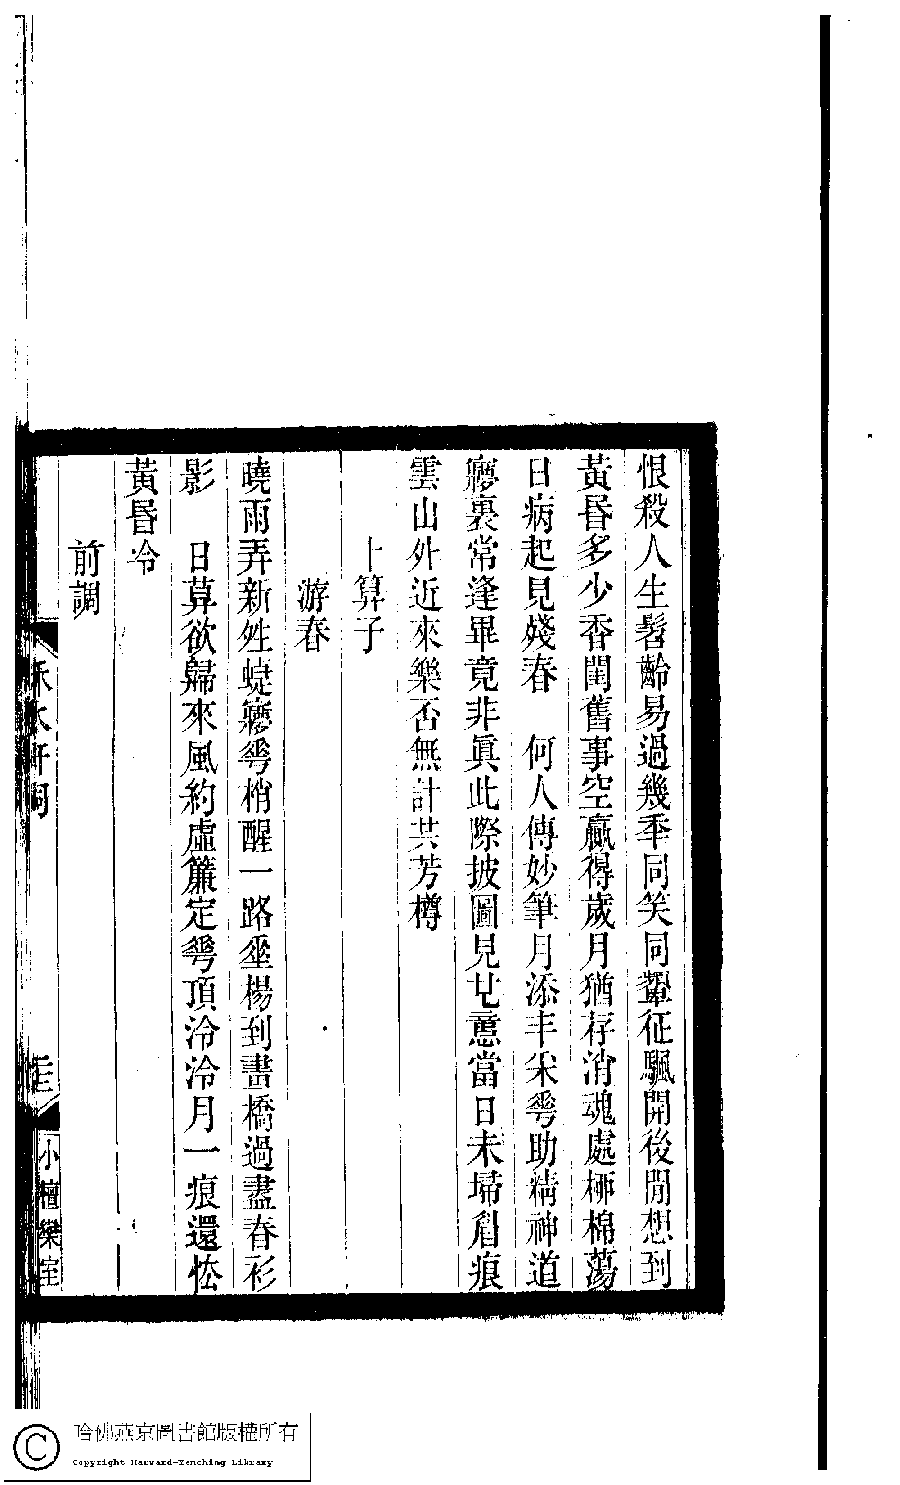 恨殺人生髫齡易過幾秊同笑同顰征颿開後閒想到
黃昏多少香閨舊事空贏得歲月猶存消魂處栁棉蕩
日病起見殘春　何人傳妙筆月添丰采蕚助精神道
㝱裏常逢畢竟非眞此際披圖見廿意當日未埽眉痕
雲山外近來樂否無計共芳樽
卜算子
游春
曉雨弄新姓蜨㝱蕚梢醒一路埀楊到畫橋過盡春衫
影　日莫欲歸來風約虛簾定蕚頂泠泠月一痕還恠
黃昏冷
前調
小檀欒室
哈佛燕京圖書館版權所有
Copyright Harvard-Yenching Library